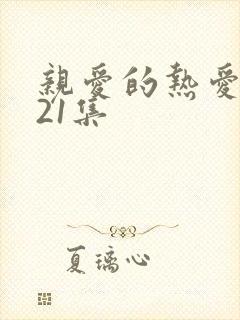 親愛的熱愛
21集
夏璃心